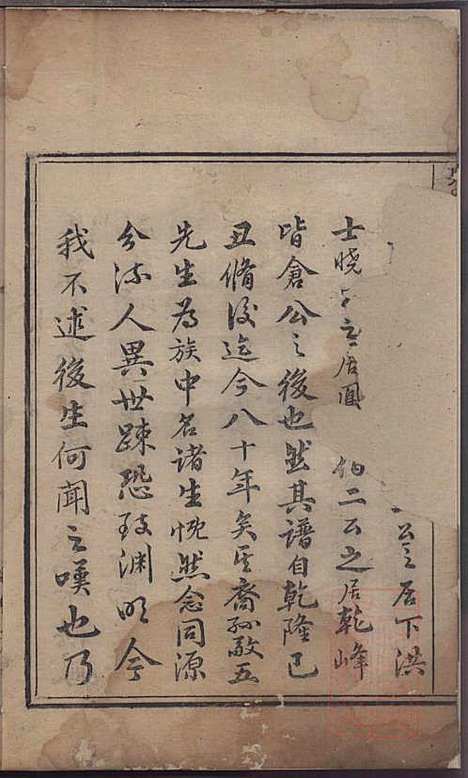 公之居下洪
士曉公之居圓 伯二公之居乾峰
皆倉公之後也然其譜自乾隆己
丑脩後迄今八十年矣其裔孫敬五
先生為族中名諸生慨然念同源
分流人異世踈恐致淵明今
我不述後生何聞之嘆也乃